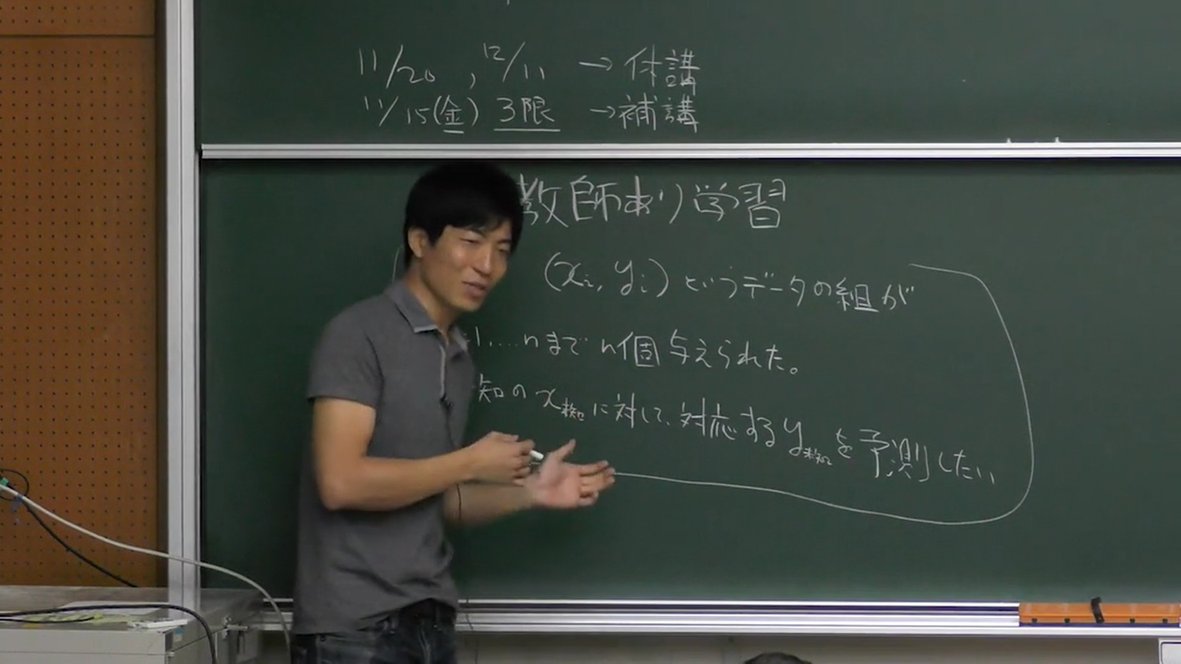 11/20, 12/11 → 休講
11/15(金) 3限 →補講
教師あり学習
(xi, yi) というデータの組が
1, ... nまで n個 与えられた。
知の x未知 に対して、対応する y未知 を予測したい